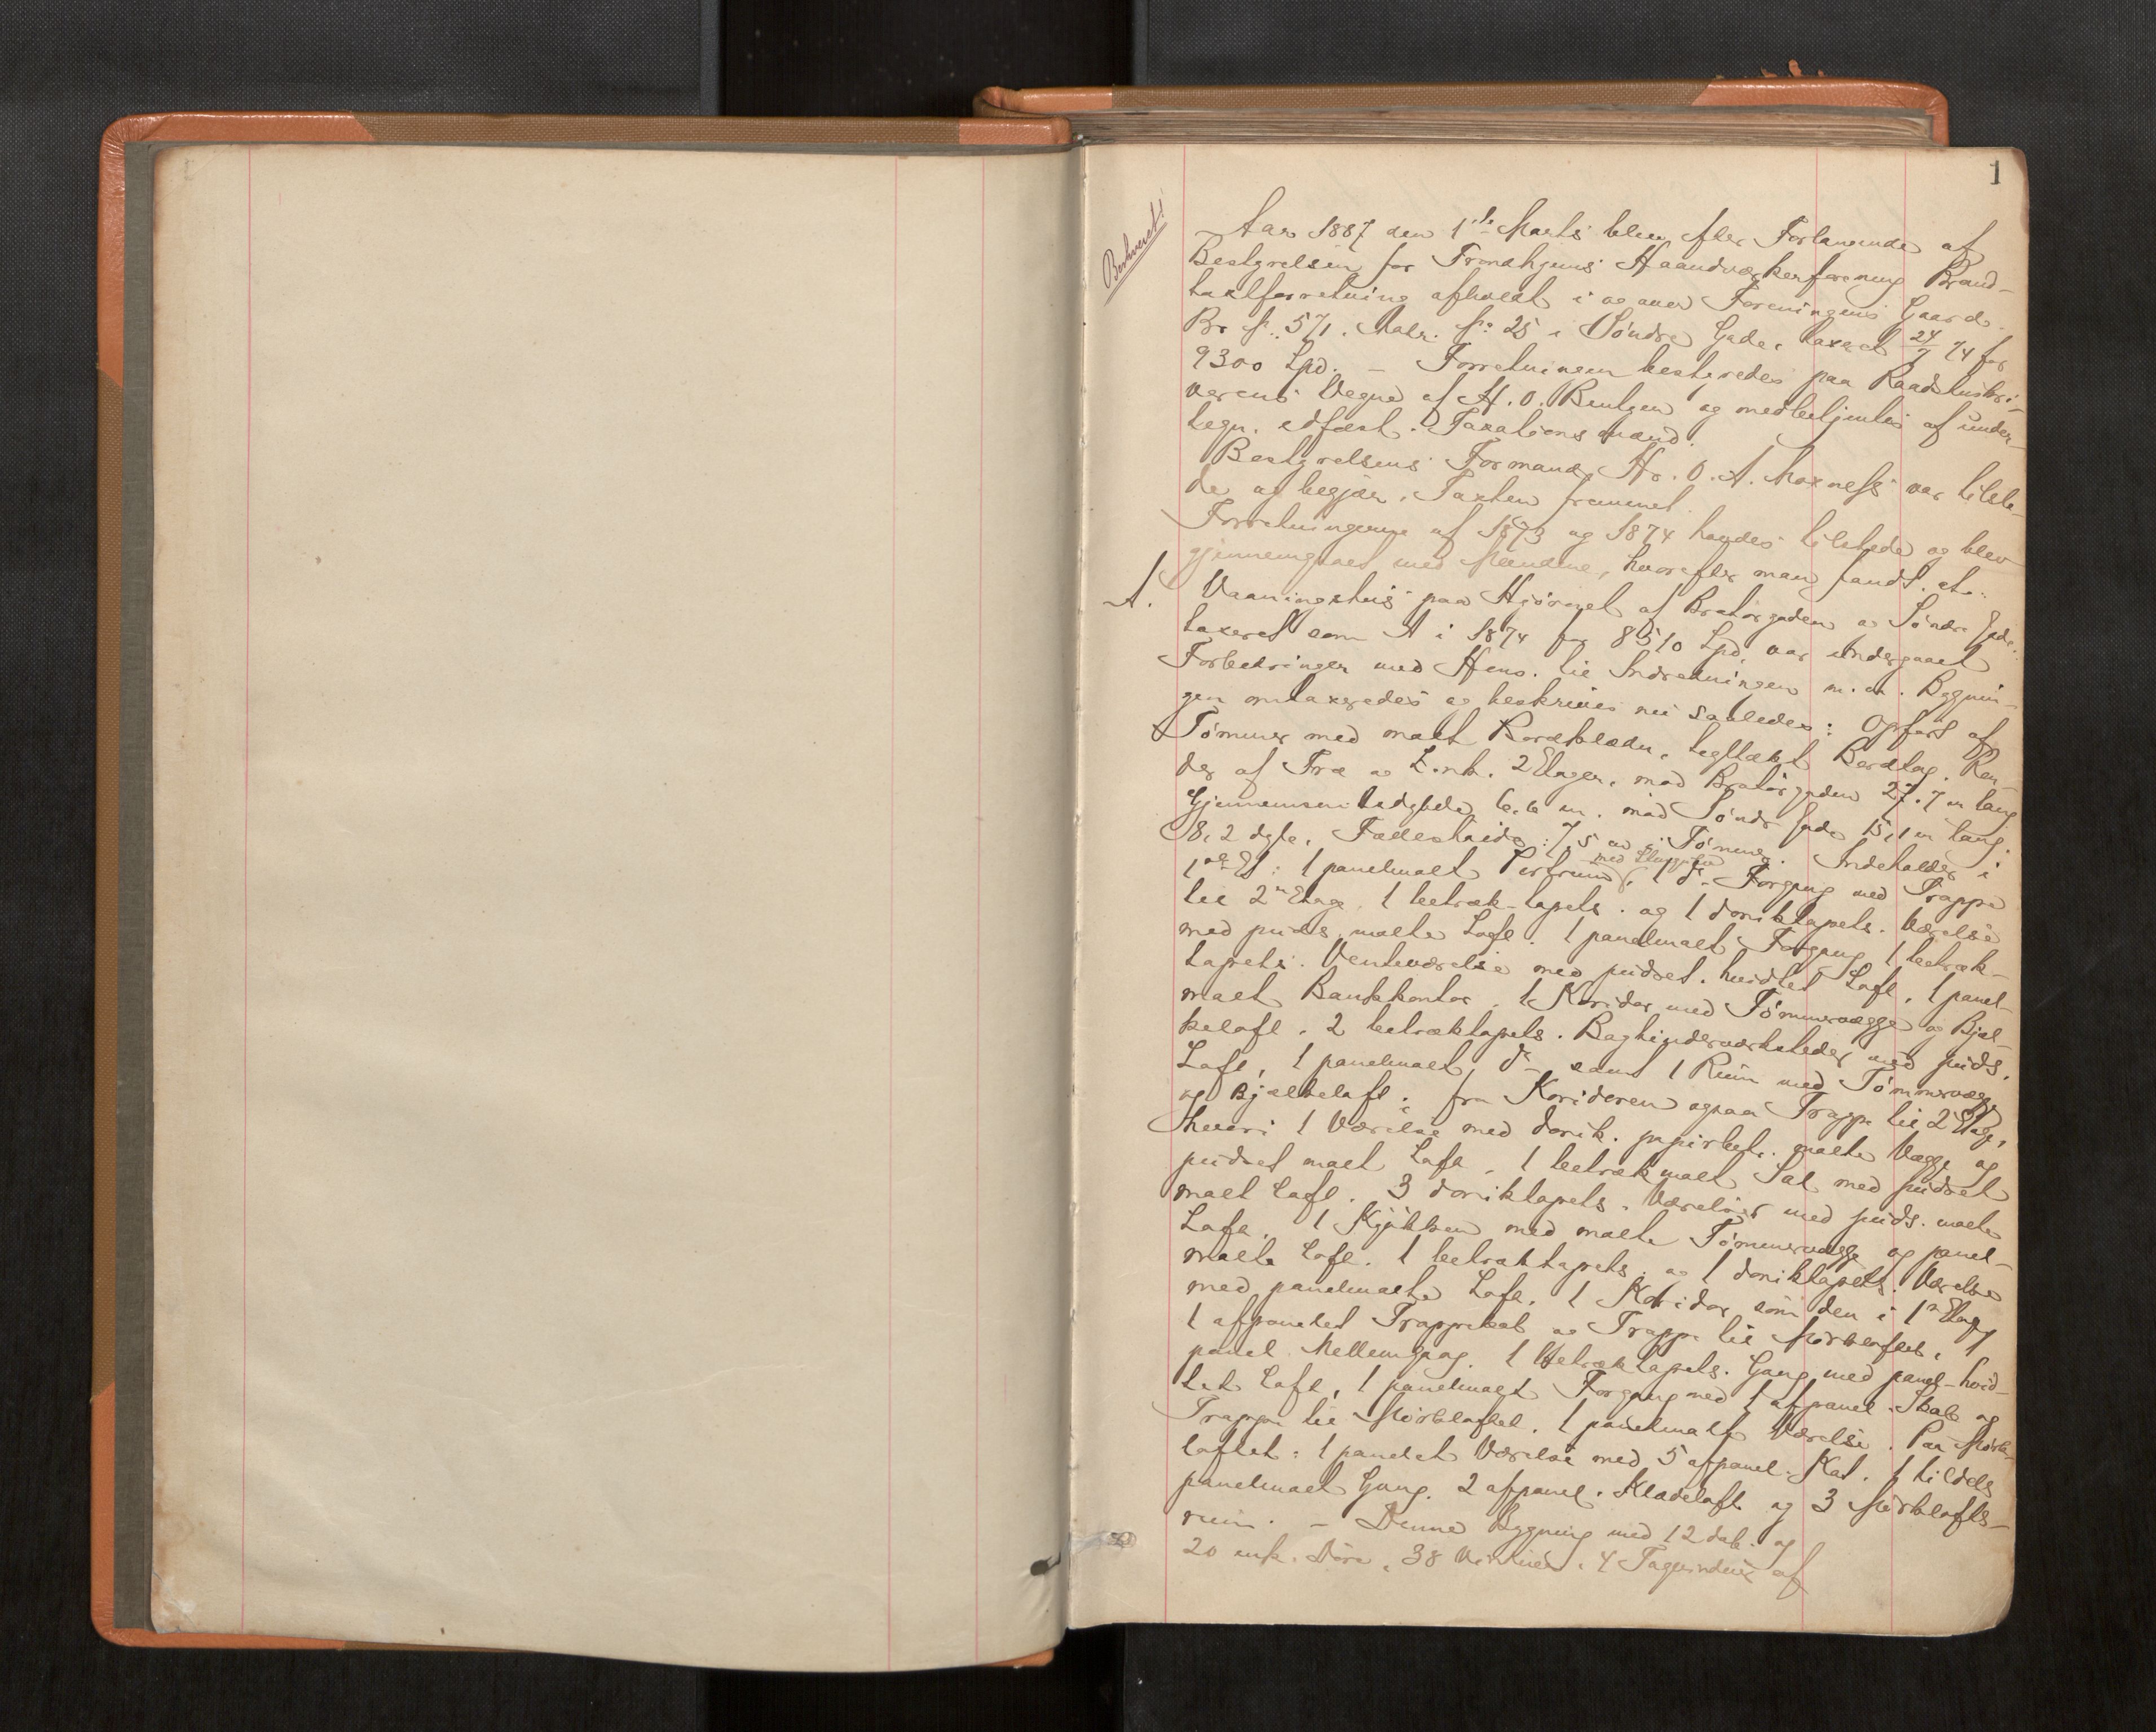 1
Beskrevet!
Aar 1887 den 1ste Marts blev efter Forlangende af
Bestyrelsen for Trondhjems Haandværkerforening Brand-
taxtforretning afholdt i og over Foreningens Gaard
Br №. 571. Matr. №: 25 i Söndre Gade, taxeret 24/7 74 for
9300 Spd. – Forretningen bestyredes paa Raadstuskri-
verens Vegne af H. O. Bentzen og medbetjentes af under-
tegn. edfæst. Taxationsmænd.
Bestyrelsens Formand, Hr. O. A. Moxness var tilste-
de og begjær. Taxten fremmet.
Forretningerne af 1873 og 1874 havdes tilstede og blev
gjennemgaaet med Mændene, hvorefter man fandt, at:
A. Vaaningshus paa Hjörnet af Bratörgaden og Söndre Gade.
taxeret som A i 1874 for 8510 Spd, var undergaaet
Forbedringer med Hens. til Indretningen m. m. Bygnin-
gen omtaxeredes og beskrives nu saaledes: Opfört af
Tömmer med malt Bordklædn., tegltækt Bordtag. Ren-
der af Træ og Zink. 2 Etager, mod Bratörgaden 27.7 m lang
Gjennemsnitsdybde 6.6 m. mod Söndr Gade 15,1 m lang.
8,2 dyb. Fælleshöide: 7,5 m i Tömmer. Indeholder i
1ste Et: 1 panelmalt Portrum med, 1 do Forgang med Trappe
til 2n Etage. 1 betræk-tapets. og 1 doriktapets. Værelse
med puds. malte Loft. 1 panelmalt Forgang, 1 betræk-
tapets. Venteværelse med pudset hvidtet Loft, 1 panel-
malt Bankkontor, 1 Koridor med Tömmervægge og Bjæl-
keloft. 2 betræktapets. Bogbinderværksteder med puds.
Loft, 1 panelmalt do samt 1 Rum med Tömmervægge
og Bjælkeloft; fra Koridoren ogsaa Trappe til 2 Etage,
hvori 1 Værelse med dorik. papirbetr. malte Vægge og
pudset malt Loft. 1 betrækmalt Sal med pudset
malt Loft. 3 doriktapets. Værelser med puds. malte
Loft. 1 Kjökken med malte Tömmervægge og panel-
malte Loft. 1 betræktapets. og 1 doriktapets. Værelse
med panelmalte Loft. 1 Koridor som den i 1n Etage
1 afpanelet Trapperum og Trappe til Mörkeloftet. 1
panel. Mellemgang. 1 betræktapets. Gang med panel-hvid-
tet Loft, 1 panelmalt Forgang med 1 afpanel. Skab og
Trappe til Mörkloftet. 1 panelmalt Værelse. Paa Mörk-
loftet: 1 panelet Værelse med 5 afpanel. Kot. 1 tildels
panelmalt Gang. 2 afpanel. Klædeloft og 3 Mörklofts-
rum. – Denne Bygning med 12 dob. og
20 enk. Döre, 38 Vinduer, 4 Tagvinduer af